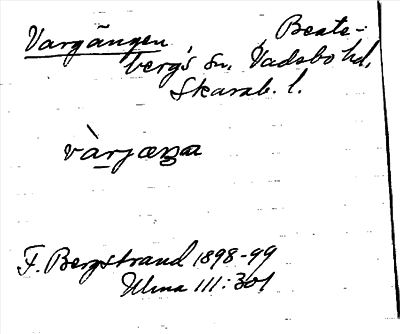 Vargängen Beate-
berg's sn, Vadsbo hd,
Skarab. l.
vàrjæŋa
F. Bergstrand 1898-99
Ulma 111:301